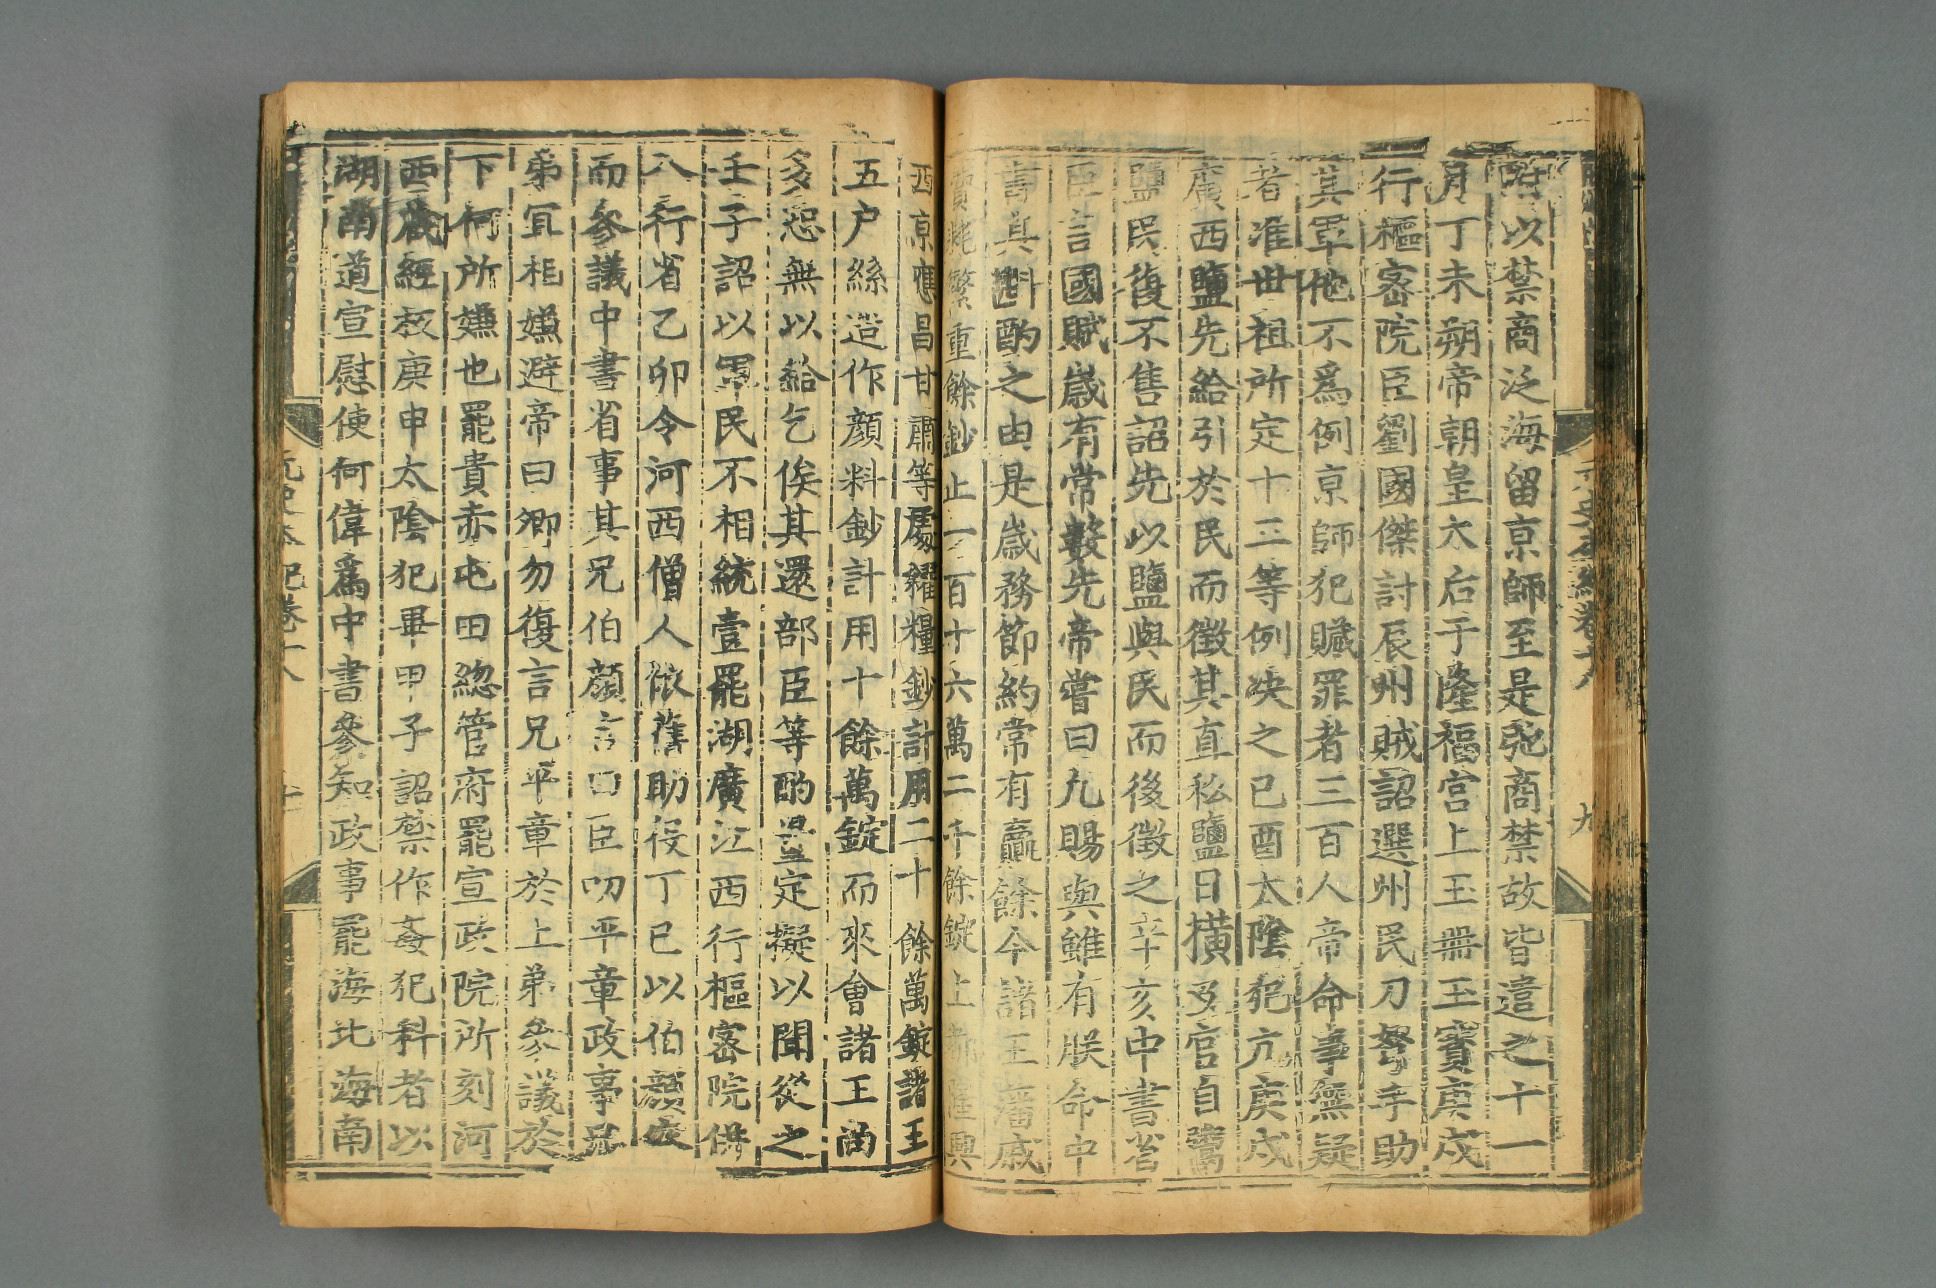 以禁商泛海留京師至是弛商禁故皆遣之十一
月丁未朔帝朝皇太后于隆福宮上玉冊玉寶庚戌
行樞密院臣劉國傑討辰州賊詔選州民刀弩手助
其軍他不爲例京師犯贓罪者三百人帝命事無疑
者准世祖所定十三等例决之己酉太陰犯亢庚戌
廣西鹽先給引於民而徵其直私鹽日橫及官自鬻
鹽民復不售詔先以鹽與民而後徵之辛亥中書省
臣言國賦歲有常數先帝嘗曰凡賜與雖有朕命中
書其斟酌之由是歲務節約常有贏餘今諸王藩戚
費耗繁重餘鈔止一百十六萬二千餘錠上都隆興
西京應昌甘肅等處糴糧鈔計用二十餘萬錠諸王
五户絲造作顏料鈔計用十餘萬錠而來會諸王尚
多恐無以給乞俟其還部臣等酌量定擬以聞從之
壬子詔以軍民不相統壹罷湖廣江西行樞密院併
入行省乙卯令河西僧人依舊助役丁巳以伯顏
而參議中書省事其兄伯顏言曰臣叨平章政事
弟宜相嫌避帝曰卿勿復言兄平章於上弟參議於
下何所嫌也罷貴赤屯田緫管府罷宣政院所刻河
西藏經板庚申太陰犯畢甲子詔禁作姦犯科者以
湖南道宣慰使何偉爲中書參知政事罷海北海南
元史本紀卷十八